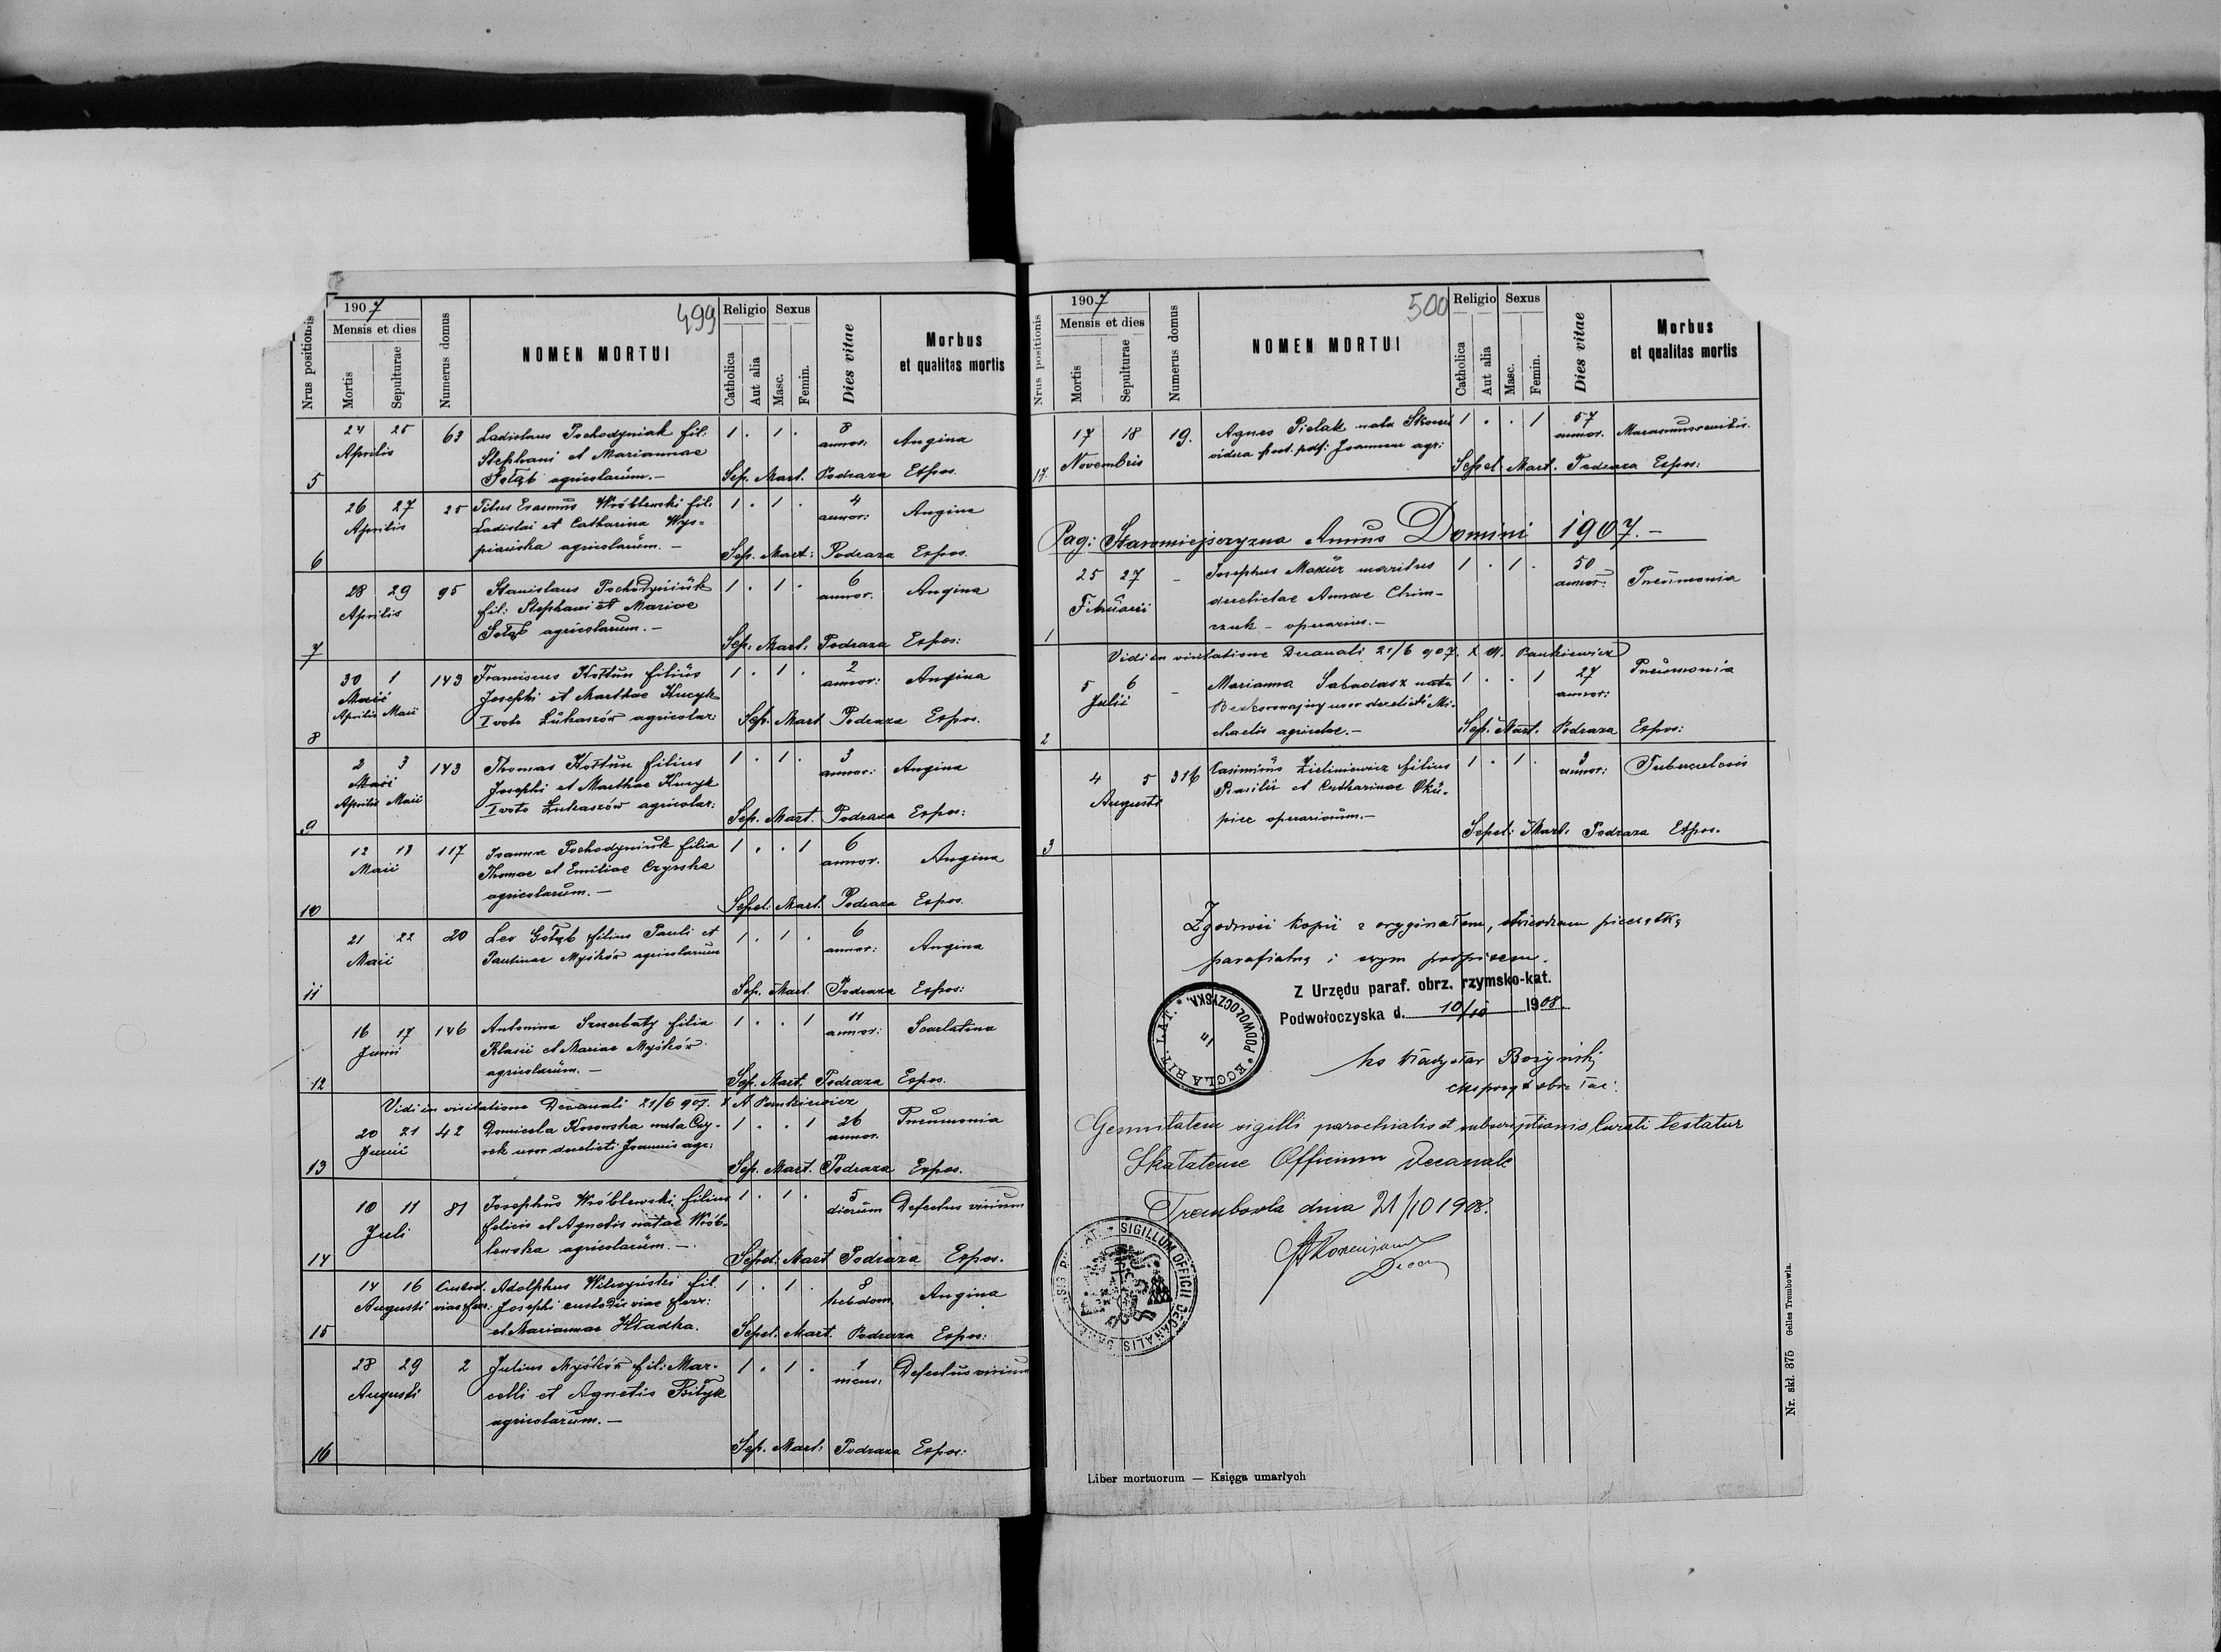 499
1907
Mensis et dies
Nrus positionis
Mortis
Sepulturae
Numerus domus
NOMEN MORTUI
Religio
Sexus
Catholica
Aut alia
Masc.
Femin.
Dies vitae
Morbus
et qualitas mortis
5
24 25
Aprilis
63
Ladislaus Pochodyniak fil:
Stephani et Mariannae
Gołąb agricolarum. —
1 . 1 .
8
annor:
Angina
Sep. Mart. Podraza Expos.
6
26 27
Aprilis
25
Titus Erasmus Wróblewski fil:
Ladislai et Catharina Wys=
piańska agricolarum. —
1 . 1 .
4
annor:
Angina
Sep. Mart: Podraza Expos.
7
28 29
Aprilis
95
Stanislaus Pochodyniuk
fil: Stephani et Mariae
Gołąb agricolarum. —
1 . 1 .
6
annor.
Angina
Sep. Mart. Podraza Expos:
8
30 1
Maii
Aprilis Maii
143
Franciscus Kołtun filius
Josephi et Marthae Kucyk
I voto Łukaszów agricolar:
1 . 1 .
2
annor:
Angina
Sep. Mart Podraza Expos.
9
2 3
Maii
Aprilis Maii
143
Thomas Kołtun filius
Josephi et Marthae Kucyk
I voto Łukaszów agricolar:
1 . 1 .
3
annor:
Angina
Sep. Mart. Podraza Expos:
10
12 13
Maii
117
Joanna Pochodyniuk filia
Thomae et Emiliae Czyrska
agricolarum. —
1 . . 1
6
annor.
Angina
Sepel: Mart. Podraza Expos.
11
21 22
Maii
20
Leo Gołąb filius Pauli et
Paulinae Myśków agricolarum
1 . 1 .
6
annor:
Angina
Sep. Mart. Podraza Expos:
12
16 17
Junii
146
Antonina Szczerbaty filia
Blasii et Mariae Myśków
agricolarum. —
1 . . 1
11
annor:
Scarlatina
Sep. Mart. Podraza Expos.
Vidi in visitatione Decanali 21/6 907. X A Pankiewicz
13
20 21
Junii
42
Domicela Kosowska nata Czy-
rek uxor derelicti Joannis agr:
1 . . 1
26
annor.
Pneumonia
Sep. Mart. Podraza Expos.
14
10 11
Juli
81
Josephus Wróblewski filius
Felicis et Agnetis natae Wrób-
lewska agricolarum. —
1 . 1 .
5
dierum
Defectus virium
Sepel: Mart Podraza Expos.
15
14 16
Augusti
Custod.
viae ferr:
Adolphus Wilczyński fil.
Josephi custodis viae ferr:
et Mariannae Hładka.
1 . 1 .
8
hebdom.
Angina
Sepel. Mart. Podraza Expos:
16
28 29
Augusti
2
Julius Myśków fil: Mar-
celli et Agnetis Biłyk
agricolarum. —
1 . 1 .
1
mens:
Defectus virium
Sep. Mart: Podraza Expos:
500
1907
Mensis et dies
Nrus positionis
Mortis
Sepulturae
Numerus domus
NOMEN MORTUI
Religio
Sexus
Catholica
Aut alia
Masc.
Femin.
Dies vitae
Morbus
et qualitas mortis
17.
17 18
Novembris
19.
Agnes Pielak nata
vidua post. Joannem agr:
1 . . 1
57
annor.
Marasmus senilis.
Sepel. Mart. Podraza Expos:
Pag: Staromiejszczyzna Annus Domini 1907. —
1
25 27
Februarii
–
Josephus Mazur maritus
derelictae Annae Chim-
czuk – operarius. —
1 . 1 .
50
annor:
Pneumonia
Vidi in visitatione Decanali 21/6 907. X A. Pankiewicz
2
5 6
Julii
–
Marianna Sabadasz nata
uxor derelicti Mi-
chaelis agricolae. —
1 . . 1
27
annor:
Pneumonia
Sep. Mart. Podraza Expos:
3
4 5
Augusti
316
Casimirus Zieliniewicz filius
Basilii et Catharinae Oku-
piec operariorum. —
1 . 1 .
3
annor:
Tuberculosis
Sepel: Mart. Podraza Expos.
Zgodność kopii z oryginałem, stwierdzam pieczątką
parafialną i swym podpisem.
Z Urzędu paraf. obrz. rzymsko-kat.
Podwołoczyska d. 10/10 1908
ECCLA RIT. LAT. * in PODWOŁOCZYSKA. *
ks Władysław Bożyński
ekspozyt obrz łac:
Genuitatem sigilli parochialis et subscriptionis Curati testatur
Skalatense Officium Decanale
Trembowla dnia 21/10 1908.
SIGILLUM OFFICII DECANALIS
Liber mortuorum — Księga umarłych
Nr. skł. 375 Gelles Trembowla.